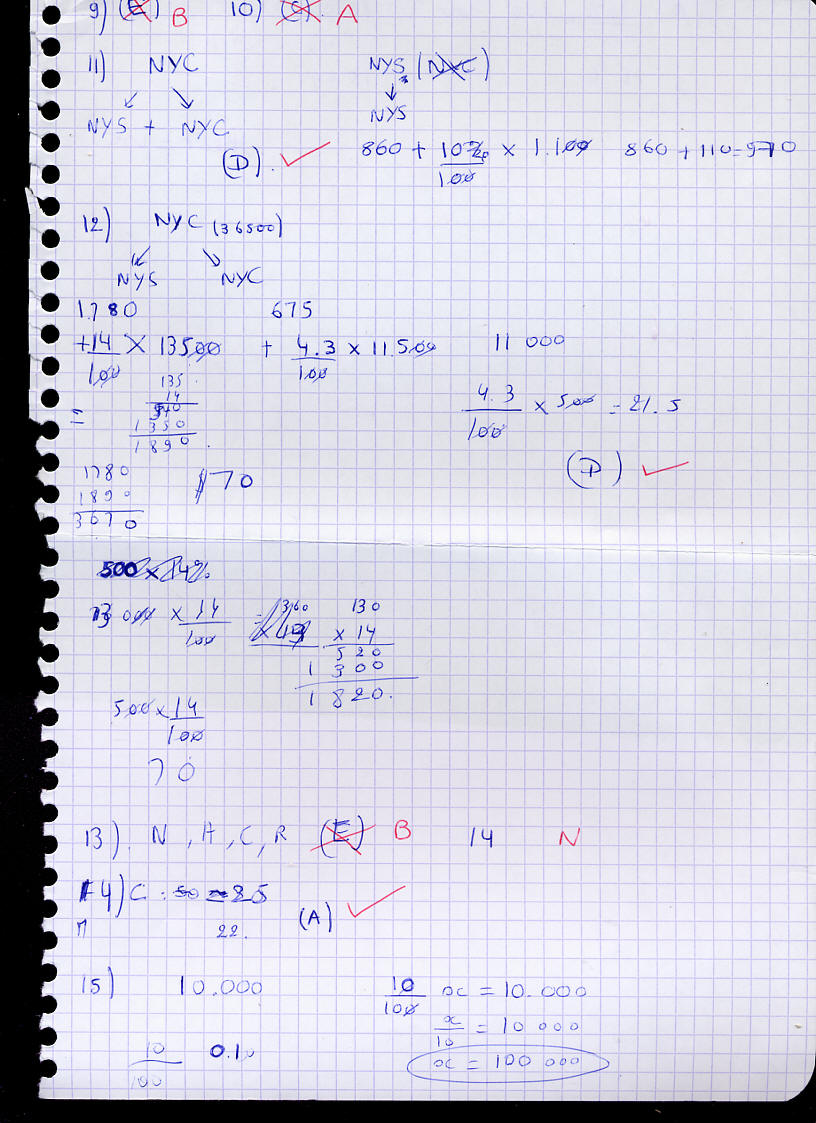 9) (E) B 10) (C) A
11) NYC NYS (NYC)
NYS
NYS + NYC
(D). 860 + 10%/100 × 1.100 860 + 110 = 970
12) NYC (36500)
NYS NYC
1.780 675
+ 14/100 × 13500 + 4.3/100 × 11.500 11 000
135
14
540
1350
1890
4.3/100 × 500 = 21.5
(D)
=
1780
1890
3670
$70
500 × 14%
13 000 × 14/100
130
× 14
520
1 300
1 820.
500 × 14/100
70
13). N, A, C, R (E) B 14 N
14) C : 50 25
22.
(A)
15) 10.000 10/100 x = 10.000
x/10 = 10 000
10/100 0.10 x = 100 000